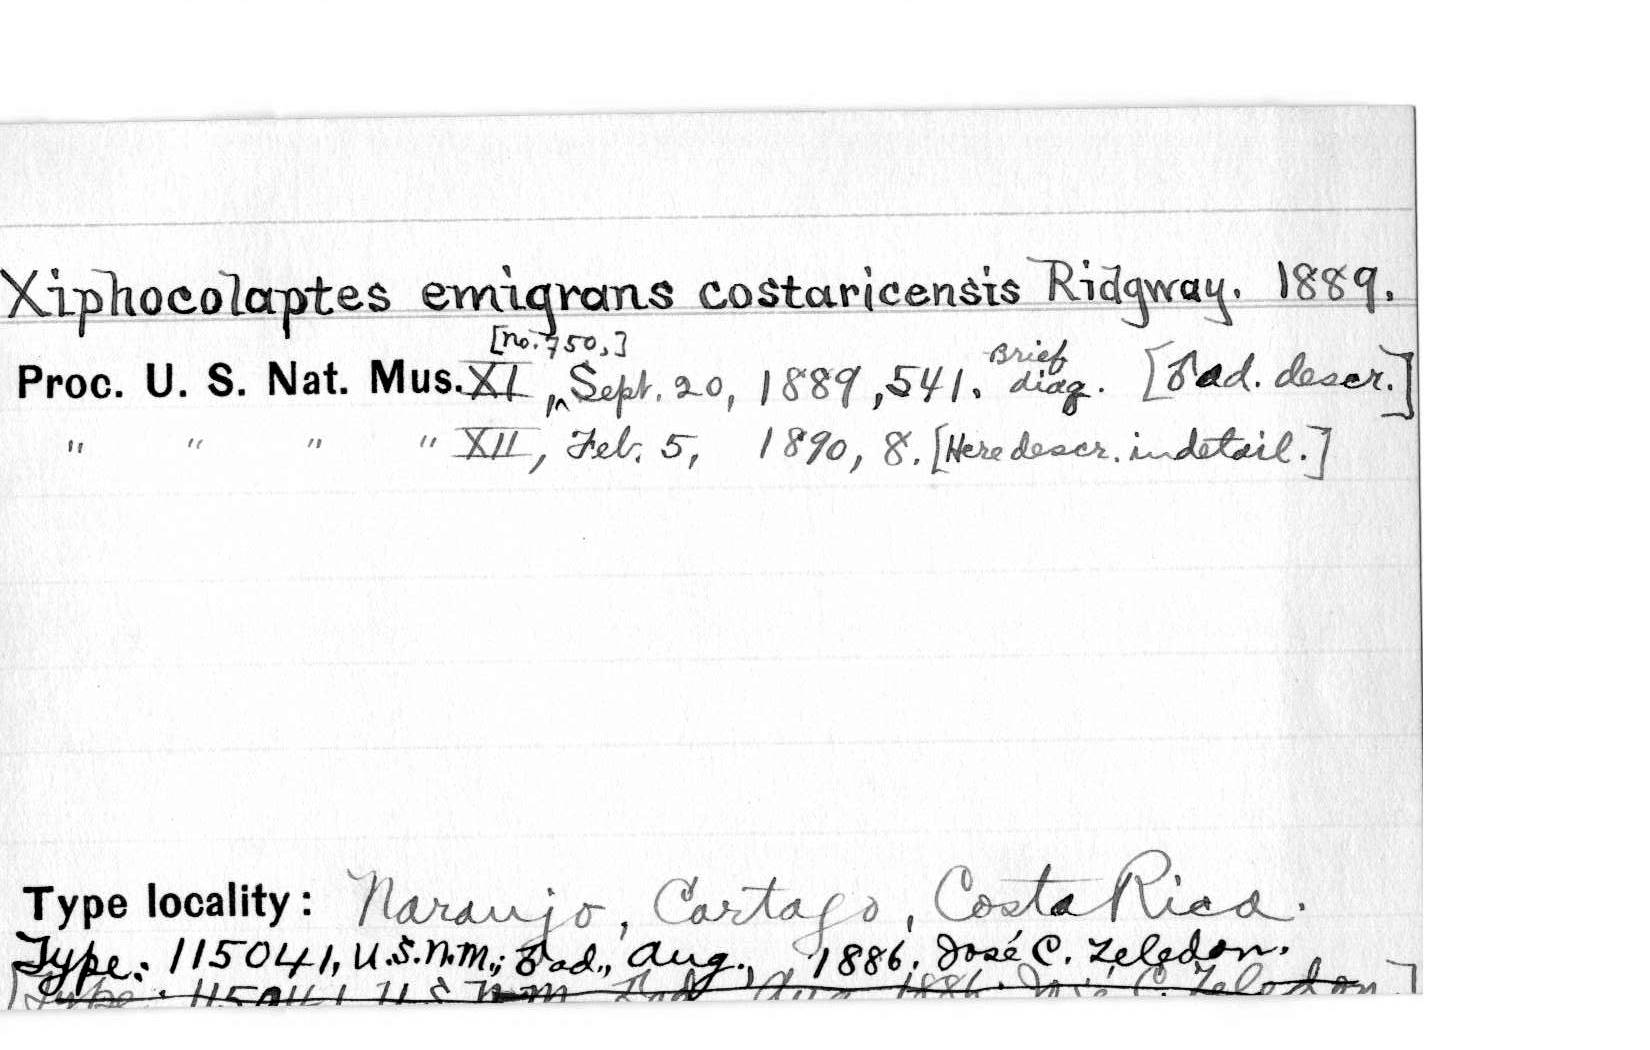 Xiphocolaptes emigrans costaricensis Ridgway. 1889.
[no. 750,]
Proc. U. S. Nat. Mus. XI, Sept. 20, 1889, 541. Brief diag. [♂ ad. descr.]
" " " " XII, Feb. 5, 1890, 8. [Here descr. in detail.]
Type locality: Naranjo, Cartago, Costa Rica.
Type: 115041, U.S.N.M.; ♂ ad., Aug. 1886. José C. Zeledon.
[Type: 115041 U S N M ♂ ad Aug 1886. José C. Zeledon]